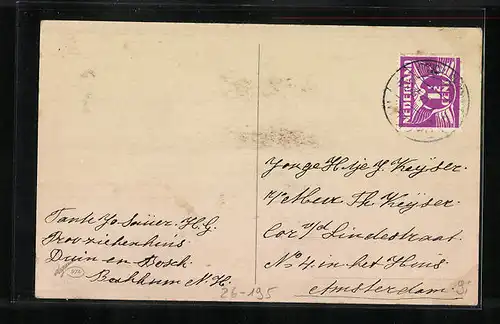 NEDERLAND
1½
CENT
Jonge Hije J. Keijser.
Th. Keijser.
Cor v/d Lindestraat.
No 4. in het Huis
Amsterdam.
Tante Jo H.G.
Provziekenhuis
Duin en Bosch
Bakkum N.H.
26-195